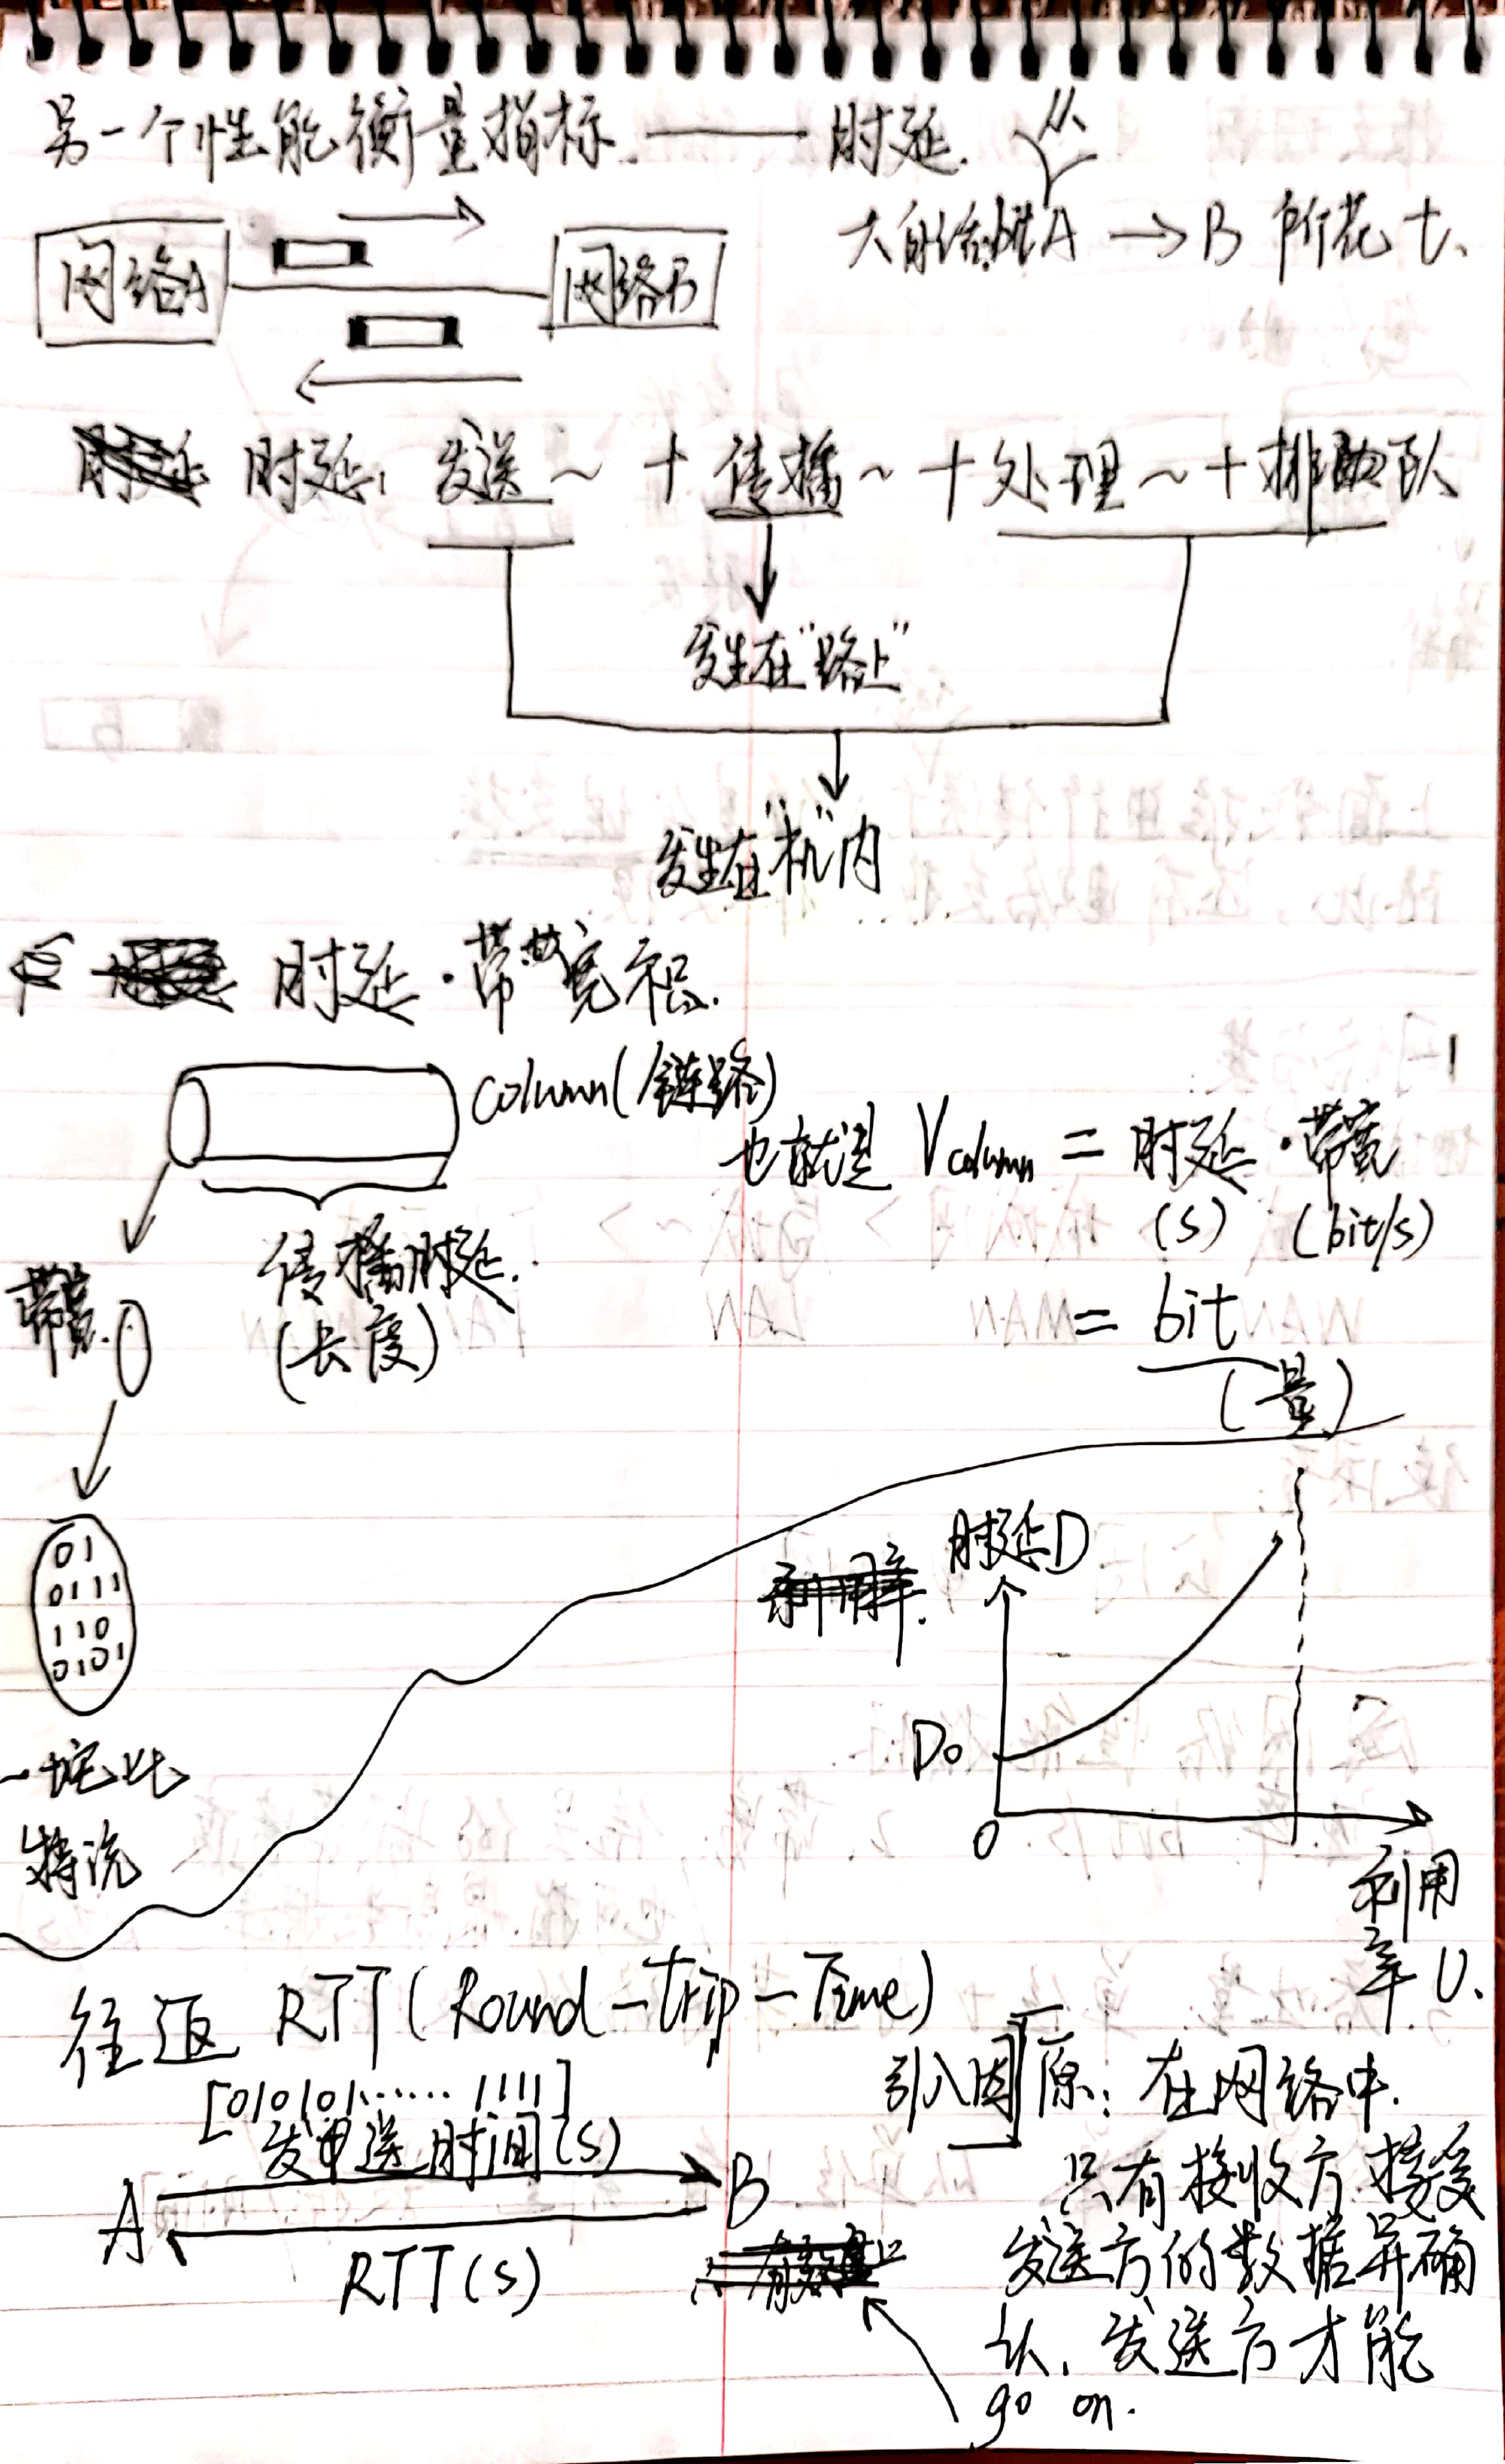 另一个性能衡量指标 —— 时延.
大自结 A → B 所花 t.
网络A 网络B
时延: 发送~ + 传播~ + 处理~ + 排队
发生在"路上"
发生在"机"内
时延·带宽积.
column(链路)
也就是 Vcolumn = 时延·带宽
(s) (bit/s)
= bit
(量)
传播时延.
(长度)
带宽.
01
0111
110
0101
一坨比
特流
时延D
D0
0
利用
率U.
往返 RTT(Round-Trip-Time)
[010101...... 1111]
发送时间(s)
A B
RTT(s)
引入因原: 在网络中.
只有接收方接受
发送方的数据并确
认, 发送方才能
go on.